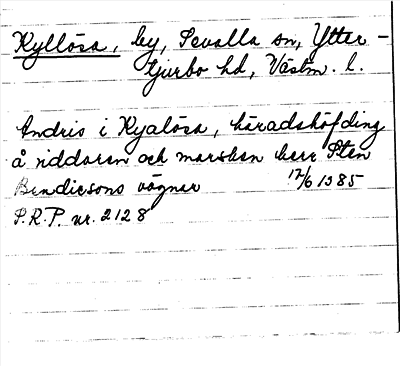 Kyllösa, by, Sevalla sn, Ytter-
tjurbo hd, Västm. l.
Andris i Kyalösa, häradshöfding
å riddaren och marsken herr Sten
Bendicsons vägnar 17/6 1385
S.R.P. nr. 2128